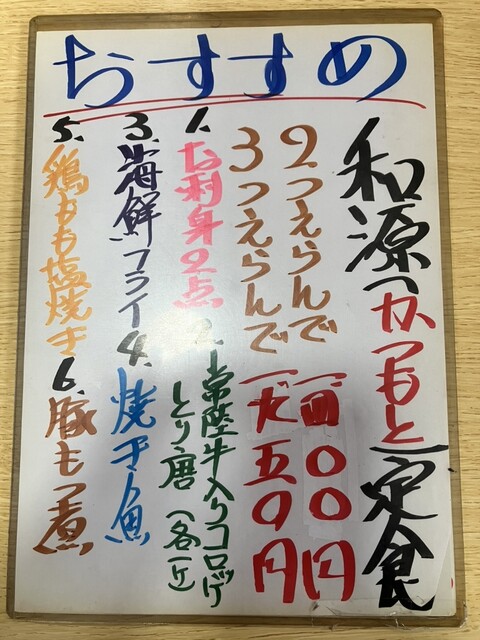 おすすめ
和源(かつもと)定食
2つえらんで 一四〇〇円
3つえらんで 一六五〇円
1. お刺身2点
2. 常陸牛入りコロッケ
とり唐(各一ケ)
3. 海鮮フライ
4. 焼き魚
5. 鶏もも塩焼き
6. 豚もつ煮